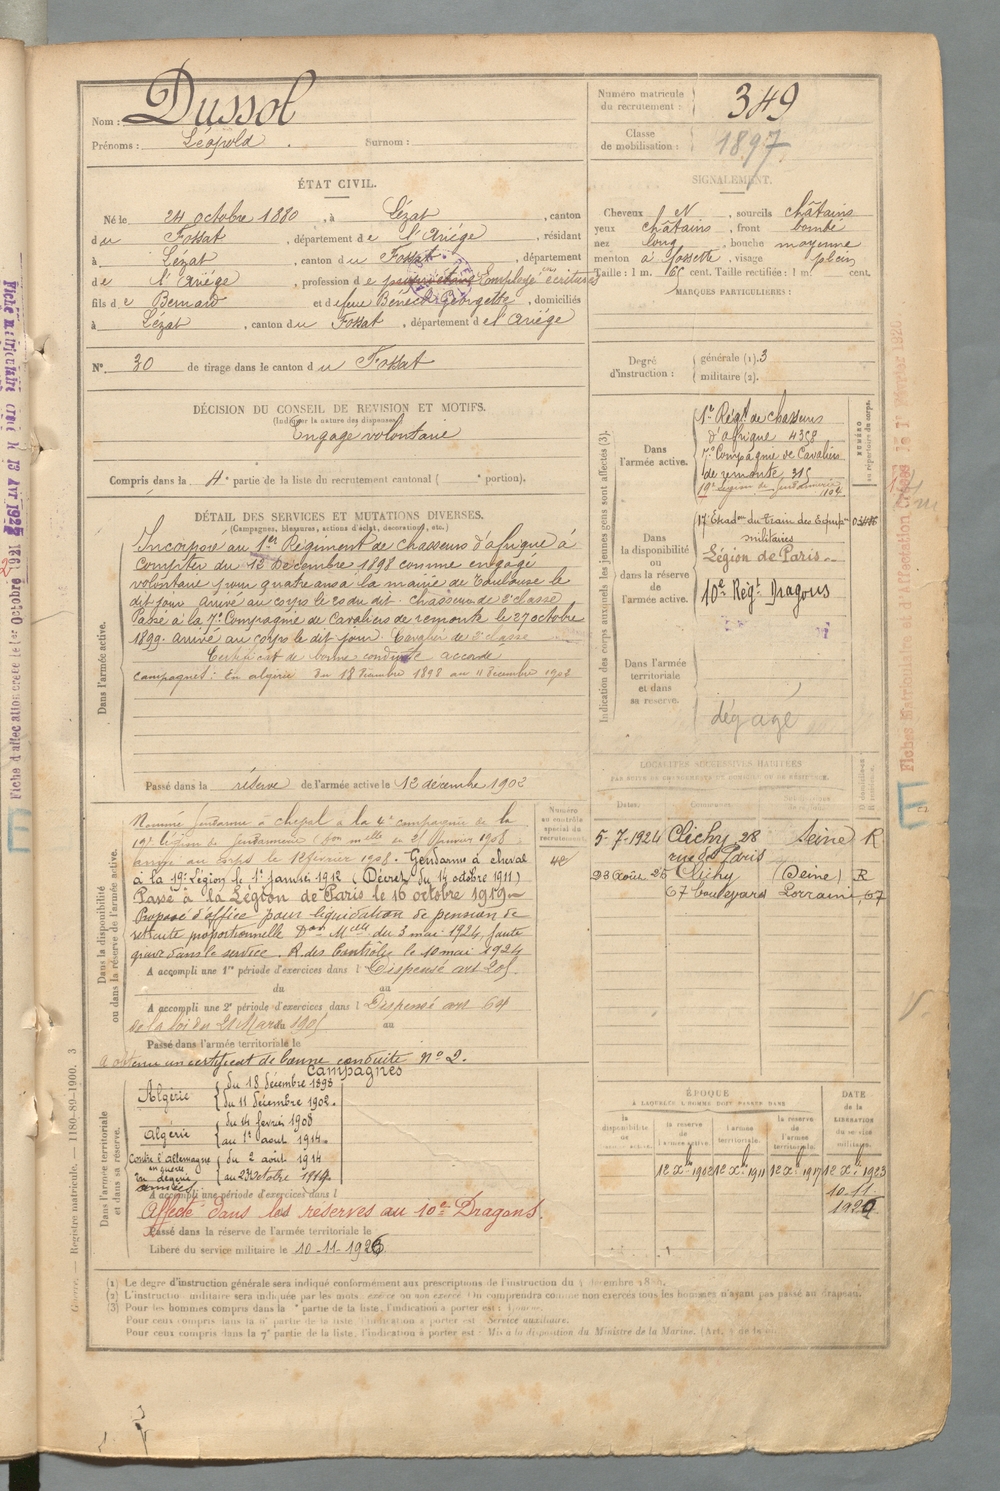 Nom : Dussol
Prénoms : Léopold . Surnom :
Numéro matricule du recrutement : 349
Classe de mobilisation : 1897
ÉTAT CIVIL.
Né le 24 octobre 1880 , à Lézat , canton
du Fossat , département de l'Ariége , résidant
à Lézat , canton du Fossat , département
de l'Ariége , profession de Employé aux écritures
fils de Bernard et de feue Bénech Georgette , domiciliés
à Lézat , canton du Fossat , département de l'Ariége
N° 30 de tirage dans le canton du Fossat
SIGNALEMENT.
Cheveux N , sourcils châtains
yeux châtains , front bombé
nez long , bouche moyenne
menton à fossette , visage plein
Taille : 1 m. 65 cent. Taille rectifiée : 1 m. cent.
MARQUES PARTICULIÈRES :
Degré d'instruction : générale (1). 3
militaire (2).
DÉCISION DU CONSEIL DE REVISION ET MOTIFS.
(Indiquer la nature des dispenses)
Engagé volontaire
Compris dans la 4e partie de la liste du recrutement cantonal ( e portion).
DÉTAIL DES SERVICES ET MUTATIONS DIVERSES.
(Campagnes, blessures, actions d'éclat, décorations, etc.)
Dans l'armée active.
Incorporé au 1er Régiment de chasseurs d'afrique à
compter du 12 Decembre 1898 comme engagé
volontaire pour quatre ans à la mairie de Toulouse le
dit jour arrivé au corps le 20 du dit. chasseur de 2e classe
Passé à la 7e Compagnie de Cavaliers de remonte le 27 octobre
1899. Arrivé au corps le dit jour. Cavalier de 2e classe
Certificat de bonne conduite accordé
campagnes : En algérie du 18 décembre 1898 au 11 décembre 1902
Passé dans la réserve de l'armée active le 12 décembre 1902
Indication des corps auxquels les jeunes gens sont affectés (3).
Dans l'armée active.
1er Régt de chasseurs
d'afrique 4358
7e Compagnie de Cavaliers
de remonte 315
19e Légion de Gendarmerie
1104
NUMÉRO au répertoire du corps.
Dans la disponibilité ou dans la réserve de l'armée active.
17e Escadon du Train des Équip.
militaires
Légion de Paris
10e Régt Dragons
Dans l'armée territoriale et dans sa réserve.
dégagé
Dans la disponibilité ou dans la réserve de l'armée active.
Nommé Gendarme à cheval à la 4e compagnie de la
19e légion de Gendarmerie
arrivé au corps le février 1908. Gendarme à cheval
à la 19e Légion le 1er janvier 1912 (Décret du 14 octobre 1911)
Passé à la Légion de Paris le 16 octobre 1919
Proposé d'office pour liquidation de pension de
retraite proportionnelle Don Melle du 3 mai 1924, faute
grave dans le service. R. des Contrôles le 10 mai 1924
A accompli une 1re période d'exercices dans l Dispensé art 205.
du au
A accompli une 2e période d'exercices dans l Dispensé art
de la loi du 21 Mars 1905 au
Passé dans l'armée territoriale le
a obtenu un certificat de bonne conduite N° 2.
Numéro au contrôle spécial du recrutement.
LOCALITÉS SUCCESSIVES HABITÉES
PAR SUITE DE CHANGEMENTS DE DOMICILE OU DE RÉSIDENCE.
5-7-1924 Clichy 28 Seine R
rue de Paris
23 Août 25 Clichy (Seine) R
67 boulevard Lorraine, 67
Dans l'armée territoriale et dans sa réserve.
Campagnes
Algérie du 18 décembre 1898
du 11 décembre 1902.
Algérie du 14 février 1908
au 1er aout 1914
Contre l'allemagne du 2 août 1914
au 23 octobre 1919
A accompli une période d'exercices dans l
Affecté dans les réserves au 10e Dragons.
Passé dans la réserve de l'armée territoriale le
Libéré du service militaire le 10-11-1926
ÉPOQUE
À LAQUELLE L'HOMME DOIT PASSER DANS
la disponibilité
la réserve de l'armée active.
l'armée territoriale.
la réserve de l'armée territoriale.
DATE de la LIBÉRATION du service militaire.
12 Xbre 1902 12 Xbre 1911 12 Xbre 1917 12 Xbre 1923
10-11
1926
(1) Le degré d'instruction générale sera indiqué conformément aux prescriptions de l'instruction du
(2) L'instruction militaire sera indiquée par les mots exercé ou non exercé. On comprendra comme non exercés tous les hommes n'ayant pas passé au drapeau.
(3) Pour les hommes compris dans la e partie de la liste, l'indication à porter est :
Pour ceux compris dans la 6e partie de la liste, l'indication à porter est : Service auxiliaire.
Pour ceux compris dans la 7e partie de la liste, l'indication à porter est : Mis à la disposition du Ministre de la Marine.
Guerre. — Registre matricule. — 1180-89-1900. 3